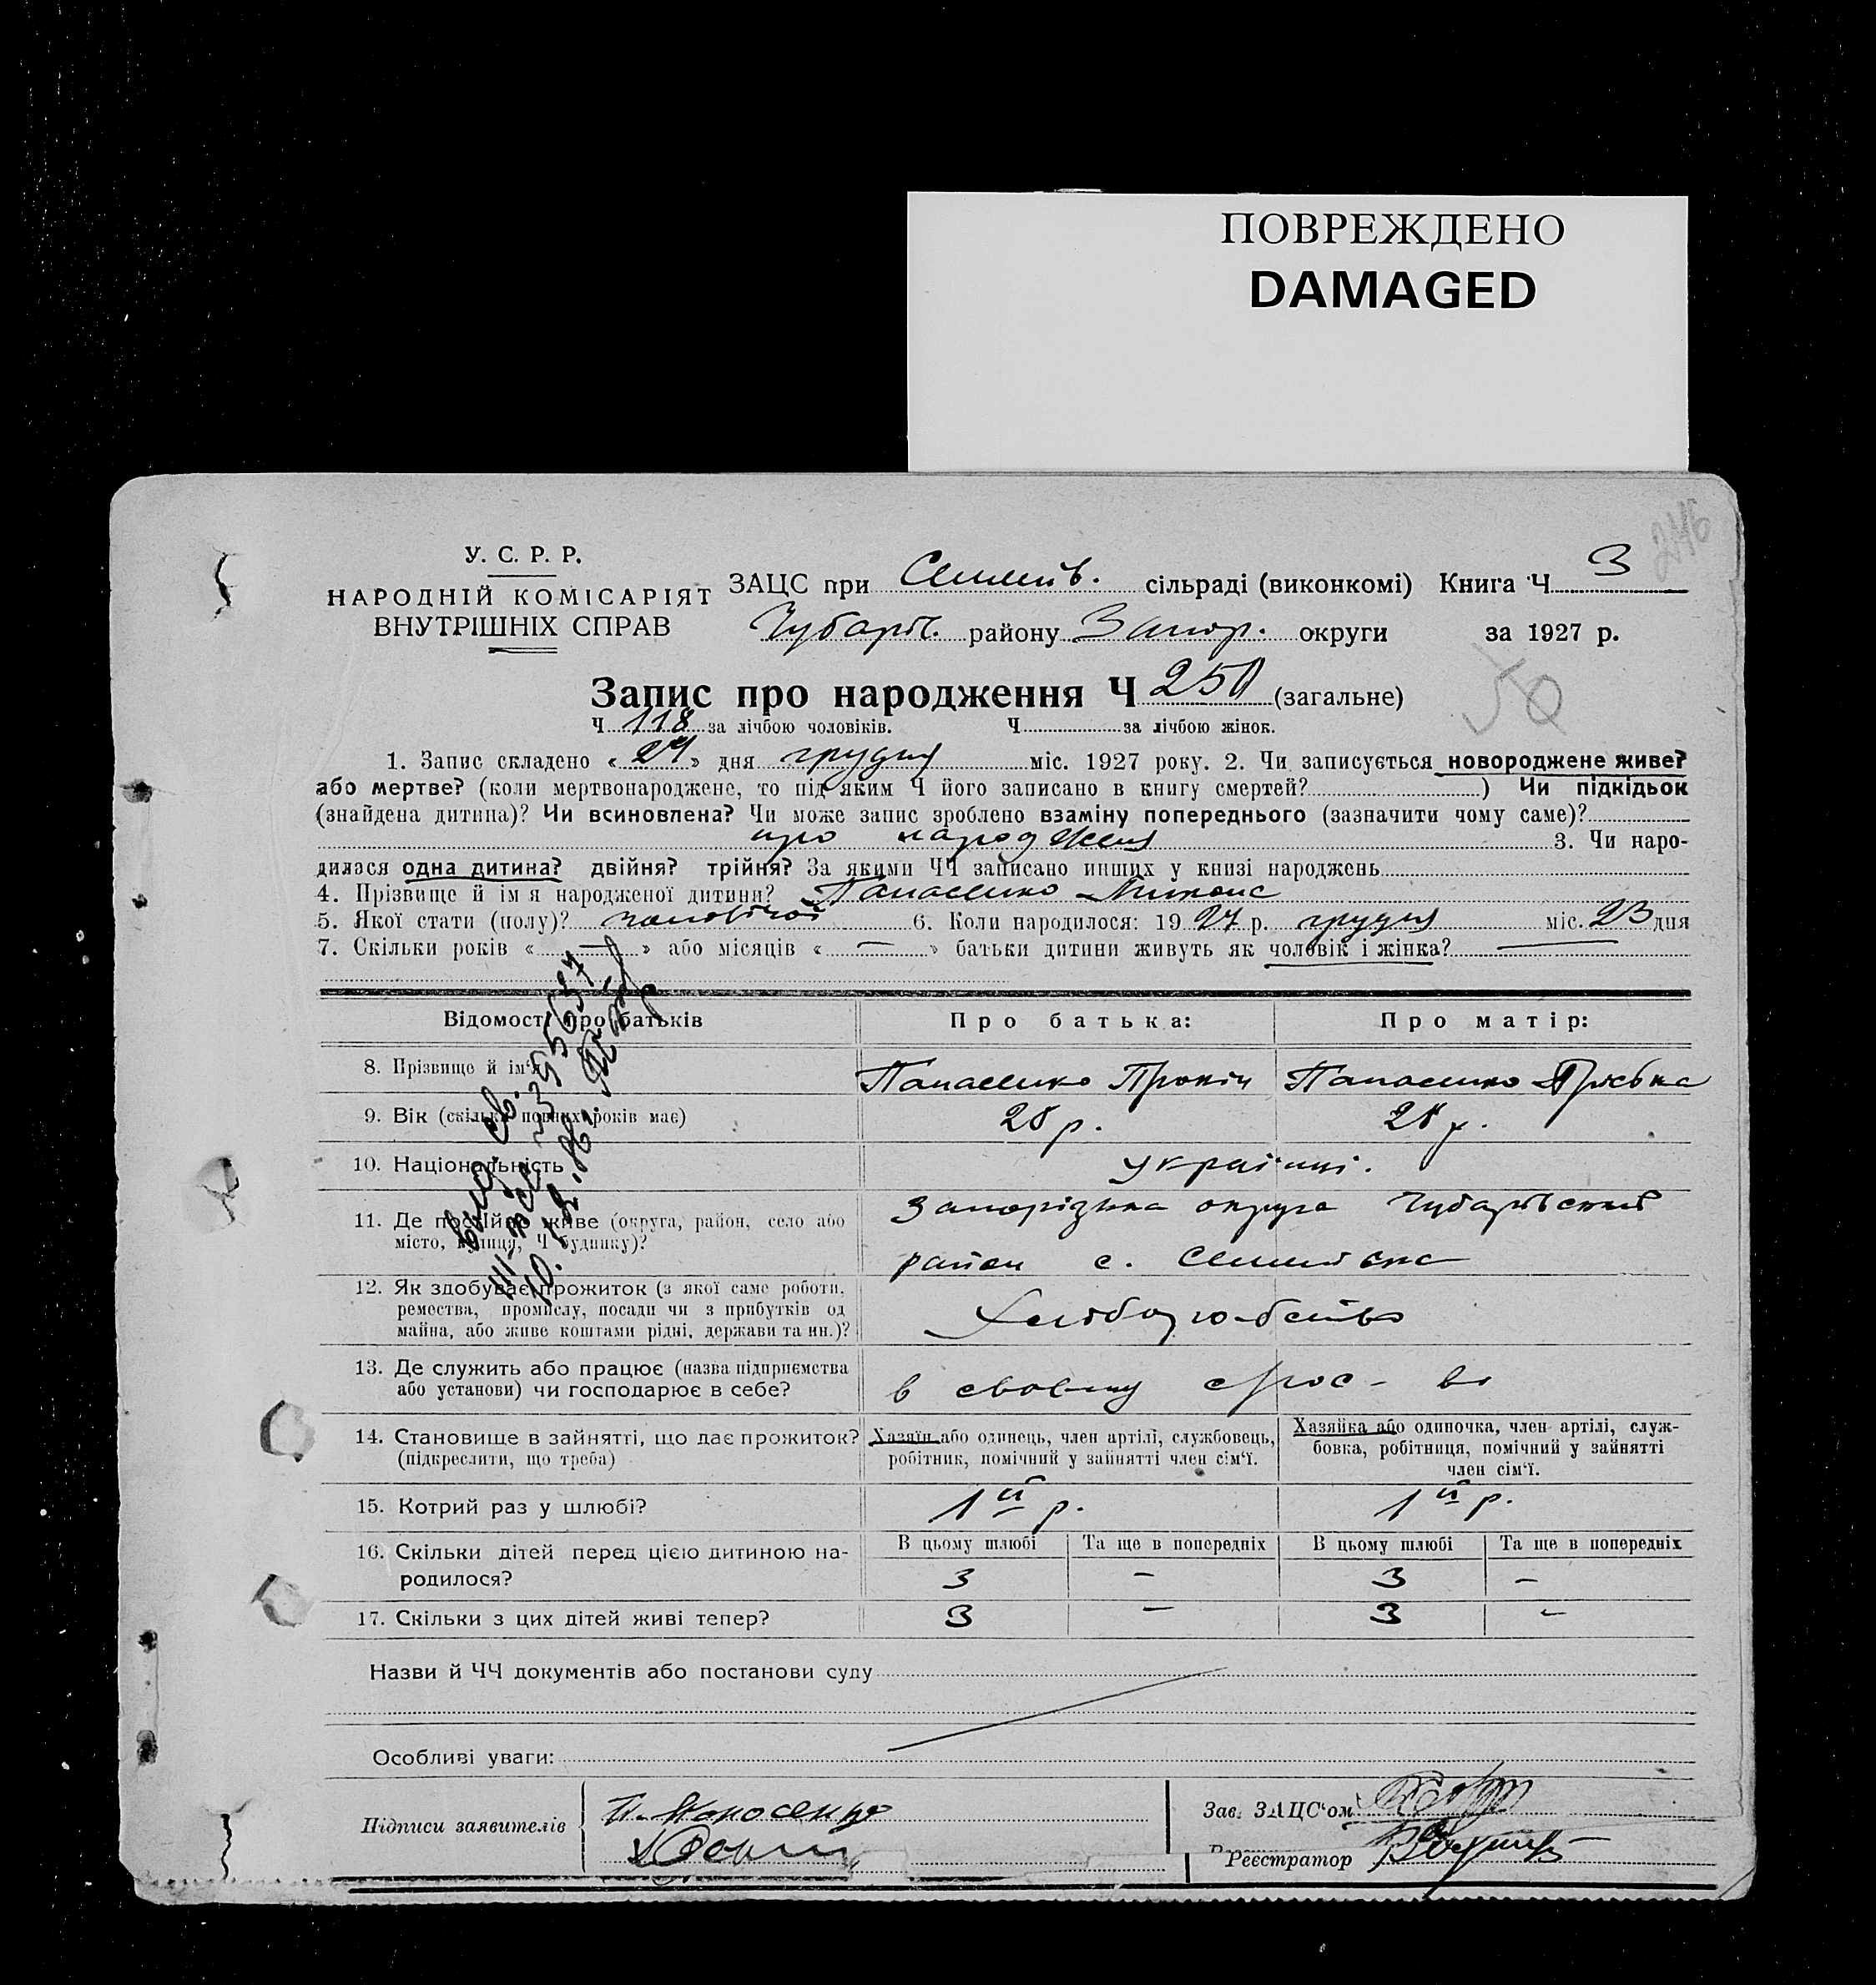 ПОВРЕЖДЕНО
DAMAGED
246
У. С. Р. Р.
НАРОДНІЙ КОМІСАРІЯТ
ВНУТРІШНІХ СПРАВ
ЗАЦС при сільраді (виконкомі) Книга Ч 3
Чубарів. району Запор. округи за 1927 р.
Запис про народження Ч 250 (загальне)
Ч 118 за лічбою чоловіків. Ч за лічбою жінок.
1. Запис складено « 27 » дня грудня міс. 1927 року. 2. Чи записується новороджене живе?
або мертве? (коли мертвонароджене, то під яким Ч його записано в книгу смертей? ) Чи підкідьок
(знайдена дитина)? Чи всиновлена? Чи може запис зроблено взаміну попереднього (зазначити чому саме)?
про народження 3. Чи наро-
дилася одна дитина? двійня? трійня? За якими ЧЧ записано инших у книзі народжень
4. Прізвище й ім'я народженої дитини? Панасенко
5. Якої стати (полу)? чоловічої 6. Коли народилося: 1927 р. грудня міс. 23 дня
7. Скільки років « — » або місяців « — » батьки дитини живуть як чоловік і жінка? —
Відомості про батьків Про батька: Про матір:
8. Прізвище й ім'я Панасенко Прокіп Панасенко Пріська
9. Вік (скільки повних років має) 28 р. 28 р.
10. Національність українці.
11. Де постійно живе (округа, район, село або
місто, вулиця, Ч будинку)?
Запорізька округа Чубарівський
район с.
12. Як здобуває прожиток (з якої саме роботи,
ремества, промислу, посади чи з прибутків од
майна, або живе коштами рідні, держави та ин.)?
Хліборобство
13. Де служить або працює (назва підприємства
або установи) чи господарює в себе?
в своєму
14. Становище в зайнятті, що дає прожиток?
(підкреслити, що треба)
Хазяїн або одинець, член артілі, службовець,
робітник, помічний у зайнятті член сім'ї.
Хазяйка або одиночка, член артілі, служ-
бовка, робітниця, помічний у зайнятті
член сім'ї.
15. Котрий раз у шлюбі? 1й р. 1й р.
16. Скільки дітей перед цією дитиною на-
родилося?
В цьому шлюбі Та ще в попередніх В цьому шлюбі Та ще в попередніх
3 – 3 –
17. Скільки з цих дітей живі тепер? 3 – 3 –
Назви й ЧЧ документів або постанови суду
Особливі уваги:
Підписи заявителів
Зав. ЗАЦС'ом
Реєстратор